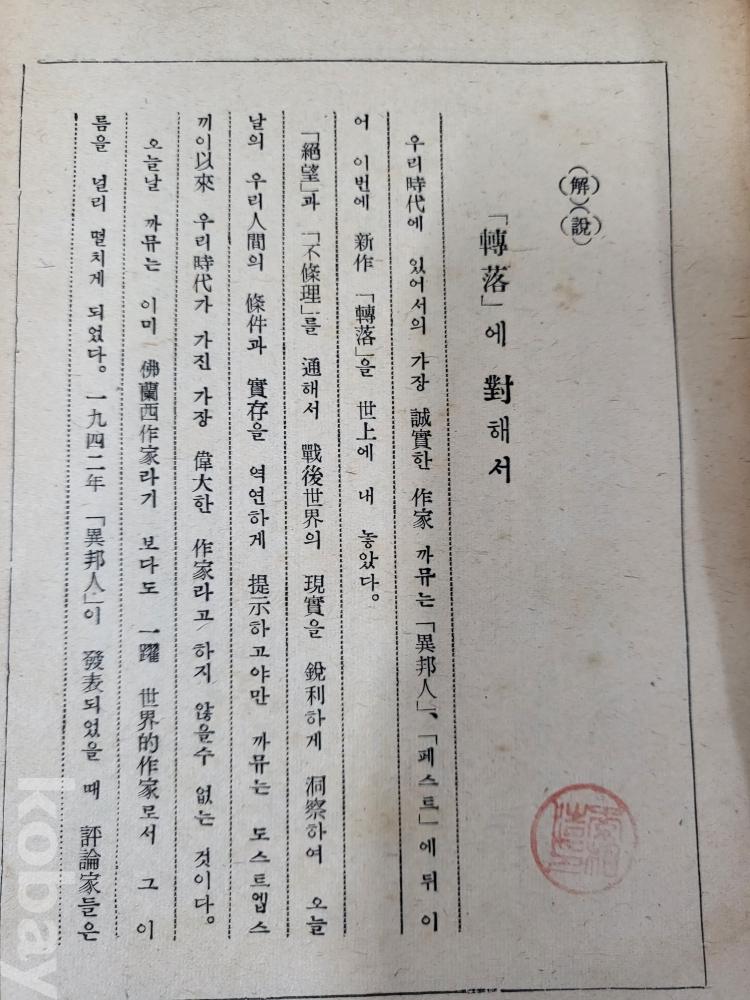 (解)(說)
「轉落」에 對해서
우리時代에 있어서의 가장 誠實한 作家 까뮤는「異邦人」、「페스트」에뒤이
어 이번에 新作 「轉落」을 世上에 내 놓았다。
「絕望」과 「不條理」를 通해서 戰後世界의 現實을 銳利하게 洞察하여 오늘
날의 우리人間의 條件과 實存을 역연하게 提示하고야만 까뮤는 도스트엡스
끼이以來 우리時代가 가진 가장 偉大한 作家라고 하지 않을수 없는 것이다。
오늘날 까뮤는 이미 佛蘭西作家라기 보다도 一躍 世界的作家로서 그 이
름을 널리 떨치게 되었다。一九四二年 「異邦人」이 發表되었을 때 評論家들은
kobay